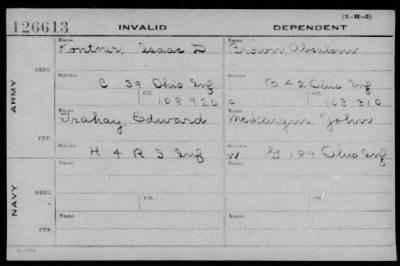 (3-H-3)
126613 INVALID DEPENDENT
Name Name
Kontner, Isaac D Brown, Absalom
ORIG.
Service Service
C 39 Ohio Inf B 42 Ohio Inf
Ctf. Ctf.
108920 C 103310
ARMY
Name Name
Trahay, Edward John
CTF.
Service Service
H 4 R S Inf W G 189 Ohio Inf
Name Name
ORIG.
Service Ctf. Service Ctf.
NAVY
Name Name
CTF.